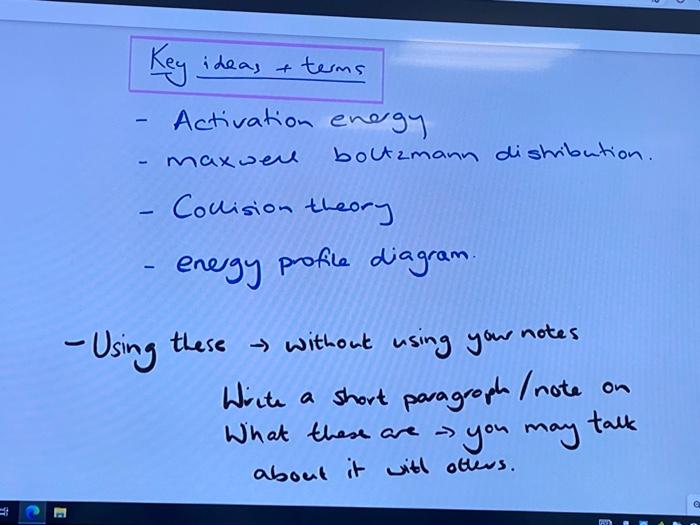 Key ideas + terms
- Activation energy
- maxwell boltzmann distribution.
- Collision theory
- energy profile diagram.
- Using these → without using your notes
Write a short paragraph/note on
What these are → you may talk
about it with others.